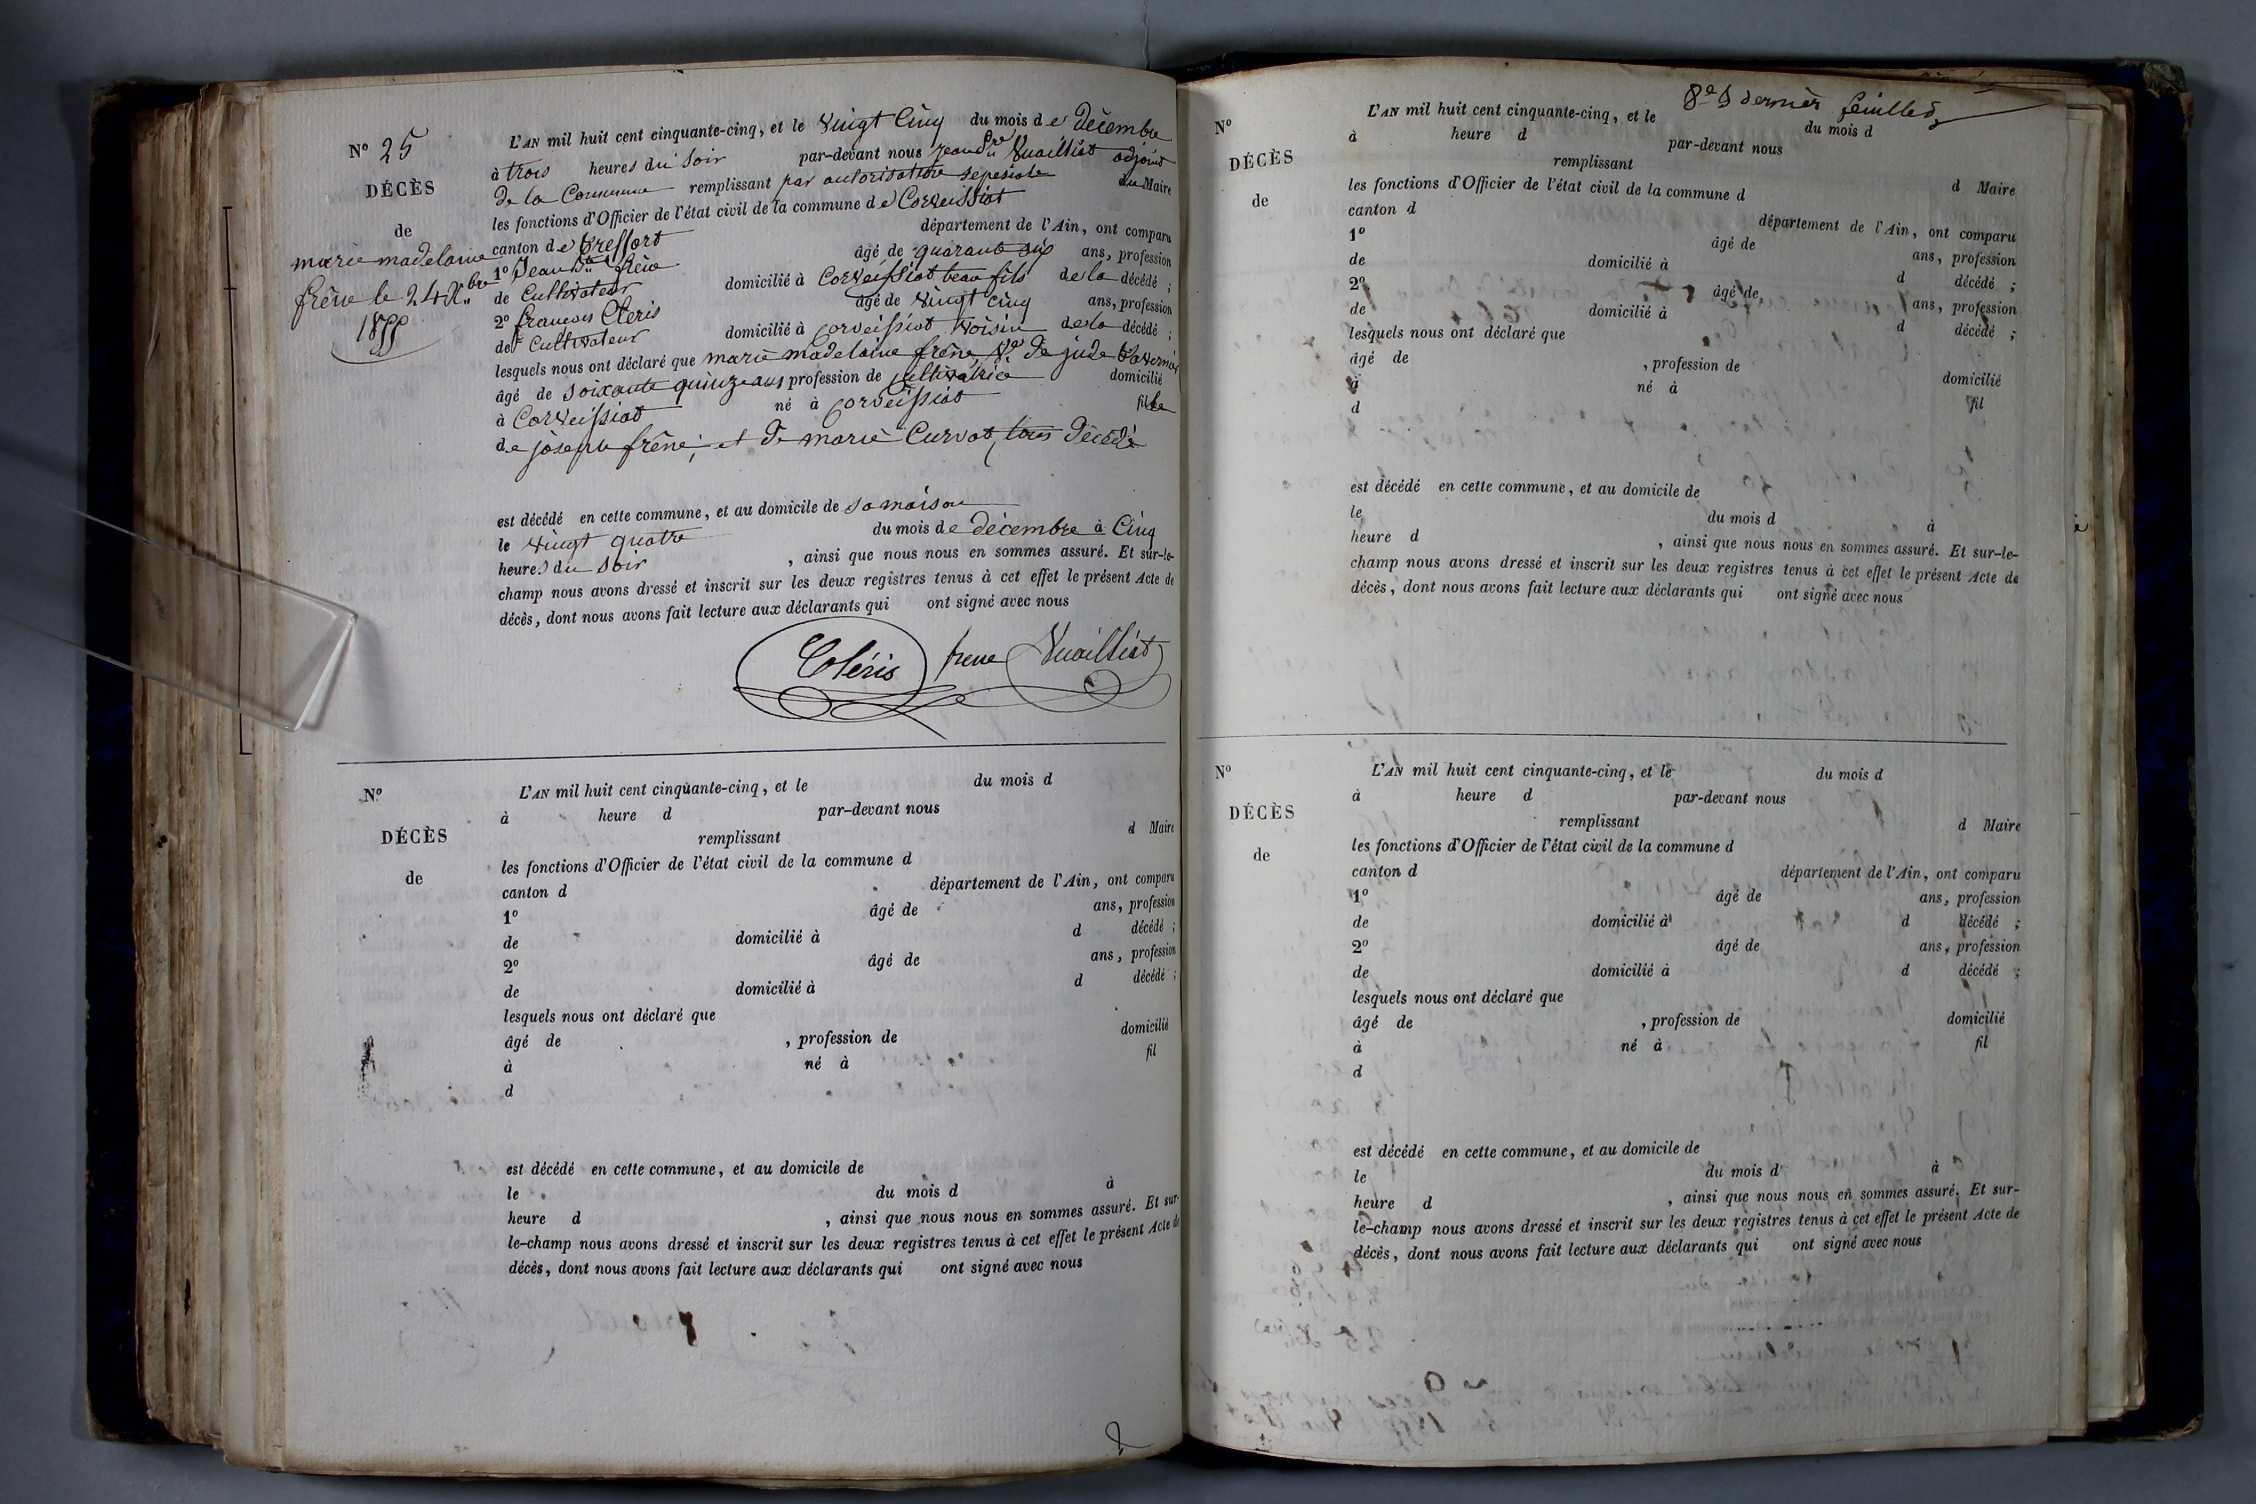 N° 25
DÉCÈS
de
marie madelaine
frêne le 24 Xbre
1855
L'AN mil huit cent cinquante-cinq, et le vingt Cinq du mois de décembre
à trois heures du soir par-devant nous jean Vuailliat adjoint
de la Commune remplissant par autorisation du Maire
les fonctions d'Officier de l'état civil de la commune de Corveissiat
canton de treffort département de l'Ain, ont comparu
1° Jean Bte frêne âgé de quarante six ans, profession
de Cultivateur domicilié à Corveissiat beau fils de la décédé ;
2° francois Cleris âgé de vingt cinq ans, profession
de Cultivateur domicilié à Corveissiat voisin de la décédé ;
lesquels nous ont déclaré que marie madelaine frêne, Ve de jude
âgé de soixante quinze ans profession de cultivatrice domicilié
à Corveissiat né à Corveissiat fille
de joseph frêne, et de marie Curvat, tous décédé
est décédé en cette commune, et au domicile de sa maison
le vingt quatre du mois de décembre à Cinq
heures du soir , ainsi que nous nous en sommes assuré. Et sur-le-
champ nous avons dressé et inscrit sur les deux registres tenus à cet effet le présent Acte de
décès, dont nous avons fait lecture aux déclarants qui ont signé avec nous
Cléris frene Vuailliat
N°
DÉCÈS
de
L'AN mil huit cent cinquante-cinq, et le du mois d
à heure d par-devant nous
remplissant d Maire
les fonctions d'Officier de l'état civil de la commune d
canton d département de l'Ain, ont comparu
1° âgé de ans, profession
de domicilié à d décédé ;
2° âgé de ans, profession
de domicilié à d décédé ;
lesquels nous ont déclaré que
âgé de , profession de domicilié
à né à fil
d
est décédé en cette commune, et au domicile de
le du mois d à
heure d , ainsi que nous nous en sommes assuré. Et sur-
le-champ nous avons dressé et inscrit sur les deux registres tenus à cet effet le présent Acte de
décès, dont nous avons fait lecture aux déclarants qui ont signé avec nous
8e & dernier feuillet
N°
DÉCÈS
de
L'AN mil huit cent cinquante-cinq, et le du mois d
à heure d par-devant nous
remplissant d Maire
les fonctions d'Officier de l'état civil de la commune d
canton d département de l'Ain, ont comparu
1° âgé de ans, profession
de domicilié à d décédé ;
2° âgé de ans, profession
de domicilié à d décédé ;
lesquels nous ont déclaré que
âgé de , profession de domicilié
à né à fil
d
est décédé en cette commune, et au domicile de
le du mois d à
heure d , ainsi que nous nous en sommes assuré. Et sur-le-
champ nous avons dressé et inscrit sur les deux registres tenus à cet effet le présent Acte de
décès, dont nous avons fait lecture aux déclarants qui ont signé avec nous
N°
DÉCÈS
de
L'AN mil huit cent cinquante-cinq, et le du mois d
à heure d par-devant nous
remplissant d Maire
les fonctions d'Officier de l'état civil de la commune d
canton d département de l'Ain, ont comparu
1° âgé de ans, profession
de domicilié à d décédé ;
2° âgé de ans, profession
de domicilié à d décédé ;
lesquels nous ont déclaré que
âgé de , profession de domicilié
à né à fil
d
est décédé en cette commune, et au domicile de
le du mois d à
heure d , ainsi que nous nous en sommes assuré. Et sur-
le-champ nous avons dressé et inscrit sur les deux registres tenus à cet effet le présent Acte de
décès, dont nous avons fait lecture aux déclarants qui ont signé avec nous